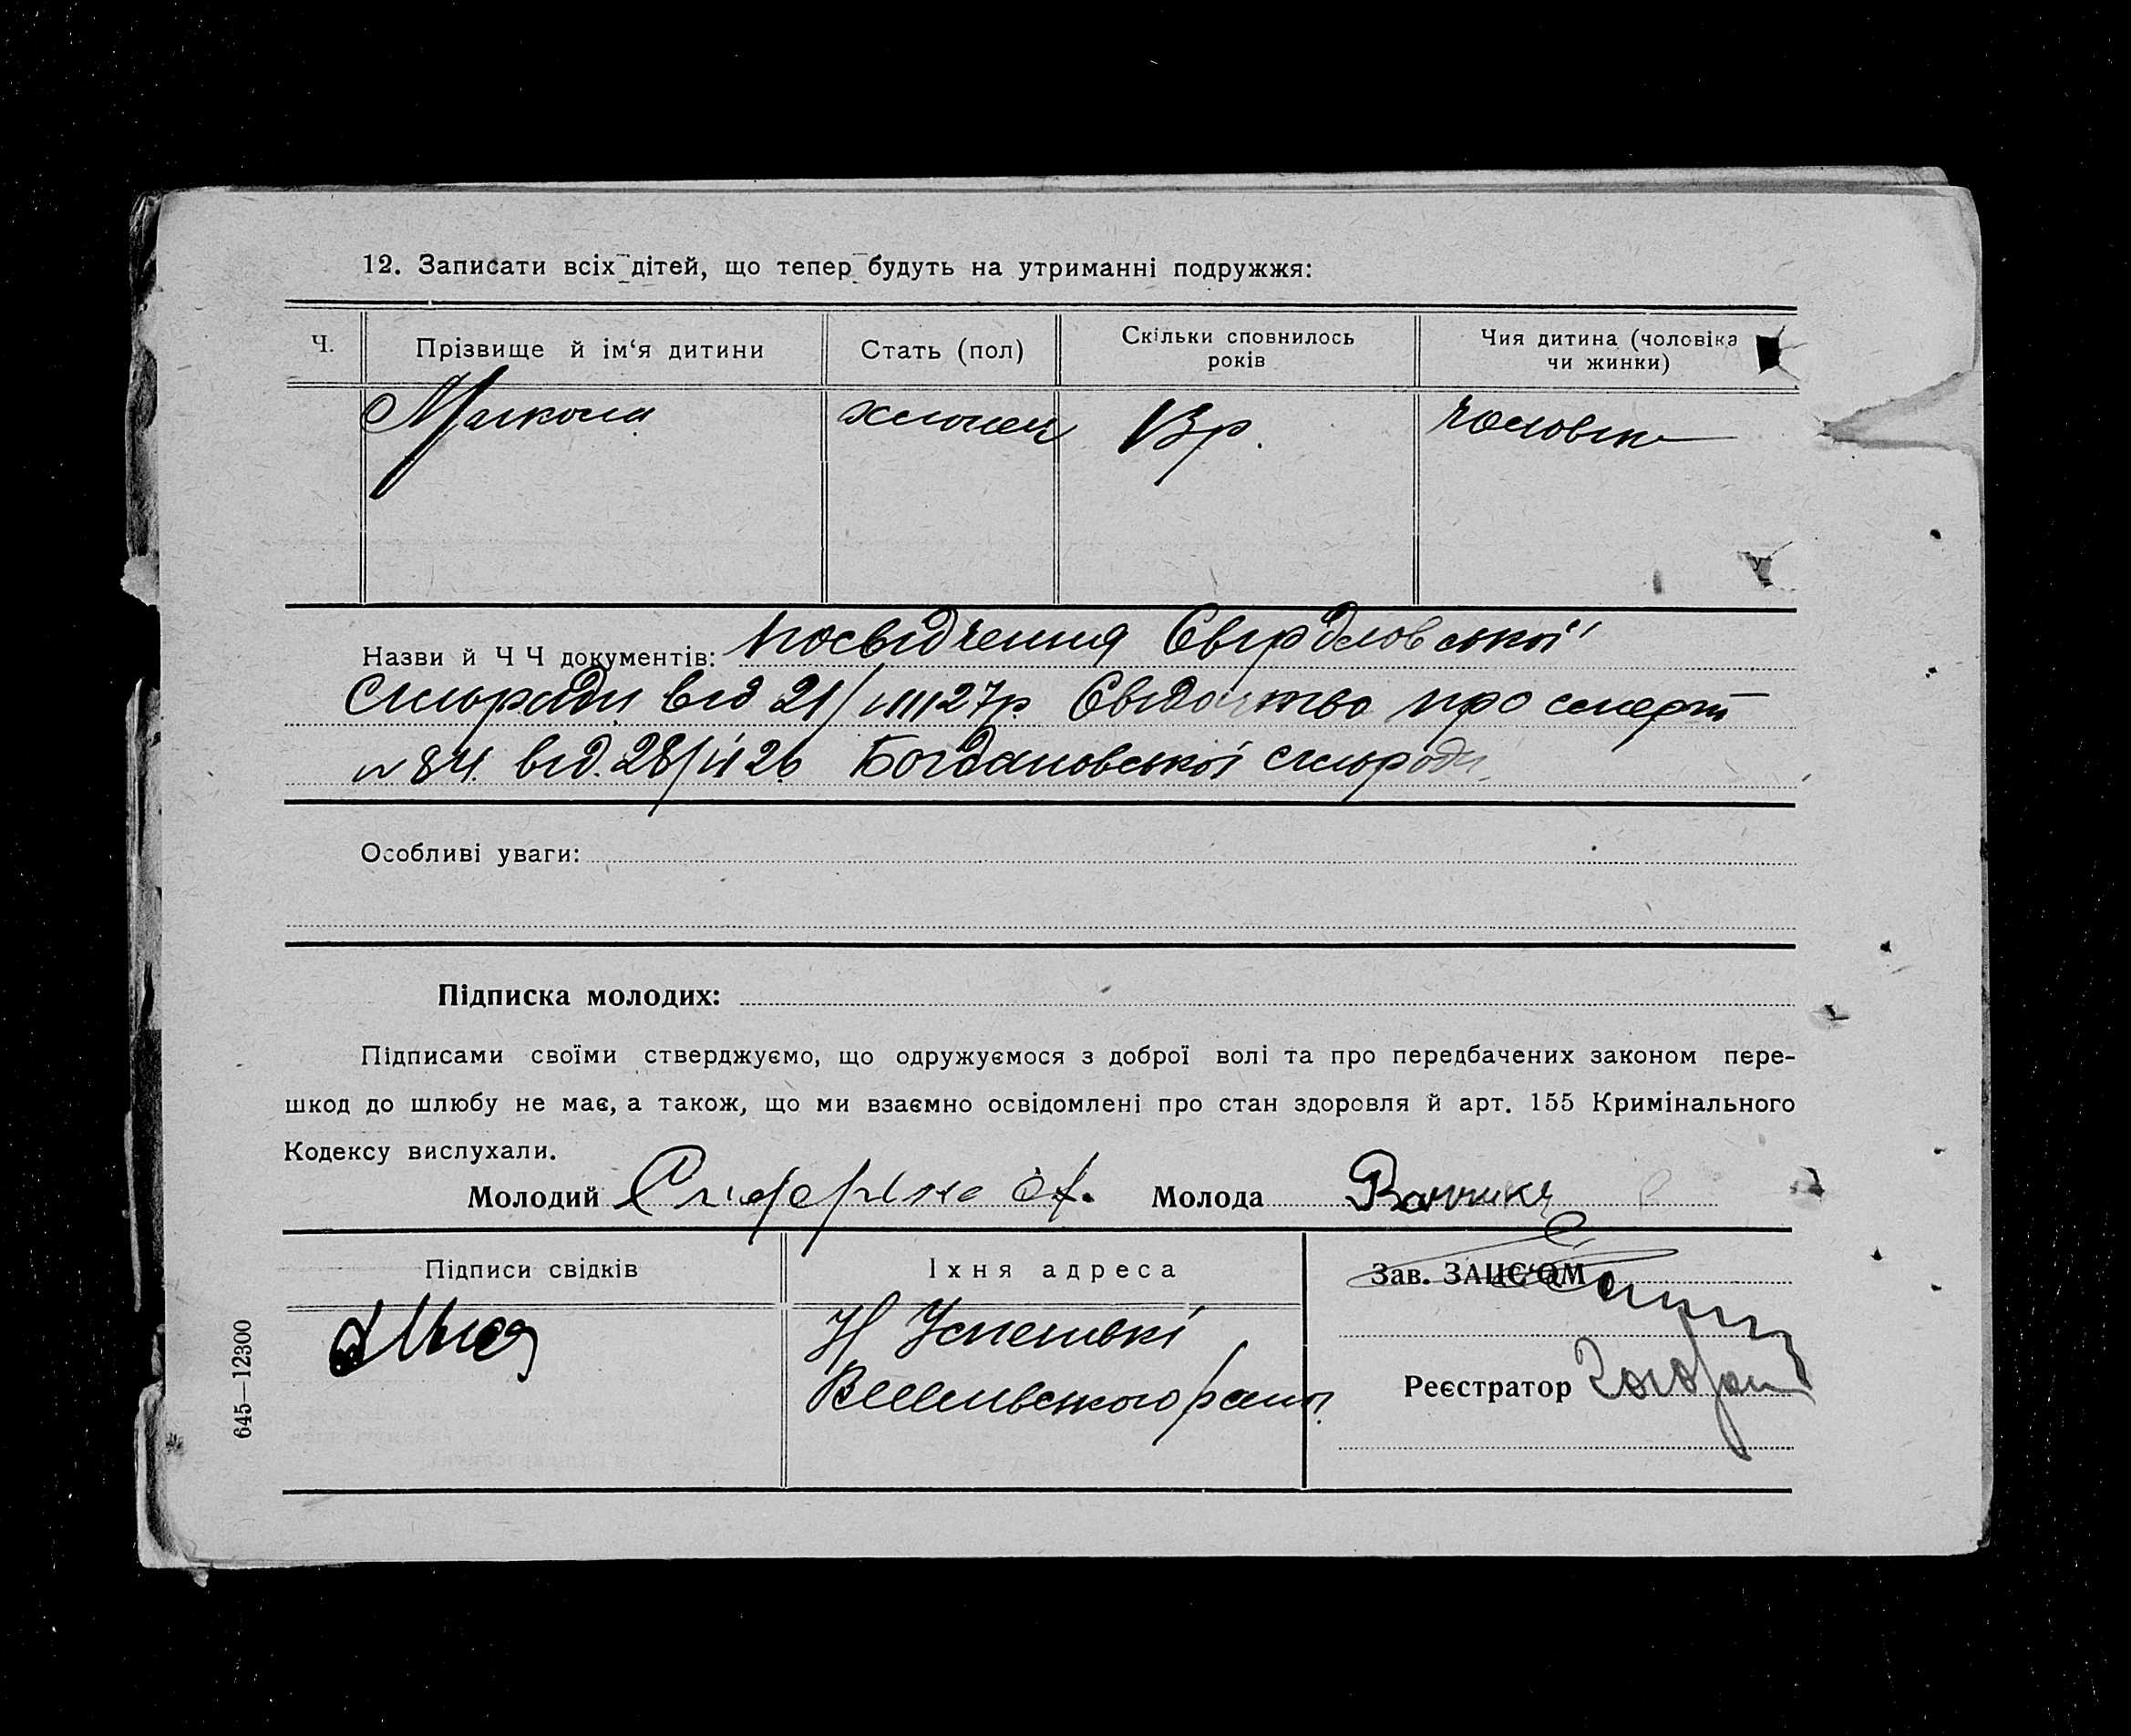 12. Записати всіх дітей, що тепер будуть на утриманні подружжя:
Ч.
Прізвище й ім'я дитини
Стать (пол)
Скільки сповнилось років
Чия дитина (чоловіка чи жинки)
Микола хлопец 13 р. чоловік
Назви й Ч Ч документів: посвідчення Свірдловської
Сільради від 21/VIII 27р. Свідоцтво про смерть
№ 84 від. 28/ 26 Богдановської сільради
Особливі уваги:
Підписка молодих:
Підписами своїми стверджуємо, що одружуємося з доброї волі та про передбачених законом пере-
шкод до шлюбу не має, а також, що ми взаємно освідомлені про стан здоровля й арт. 155 Кримінального
Кодексу вислухали.
Молодий Молода
Підписи свідків
Їхня адреса
Зав. ЗАЦС'ОМ
Н Успенівкі
району
Реєстратор
645—12300